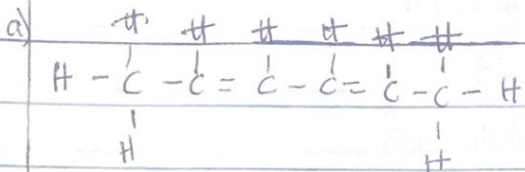 a)
H H H H H H
H - C - C = C - C = C - C - H
H H